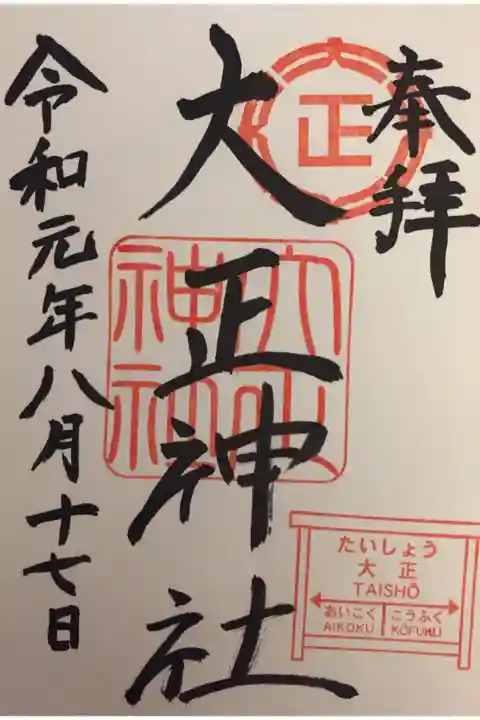 奉拝
正
大正神社
大正神社
令和元年八月十七日
たいしょう
大正
TAISHŌ
あいこく こうふく
AIKOKU KŌFUKU